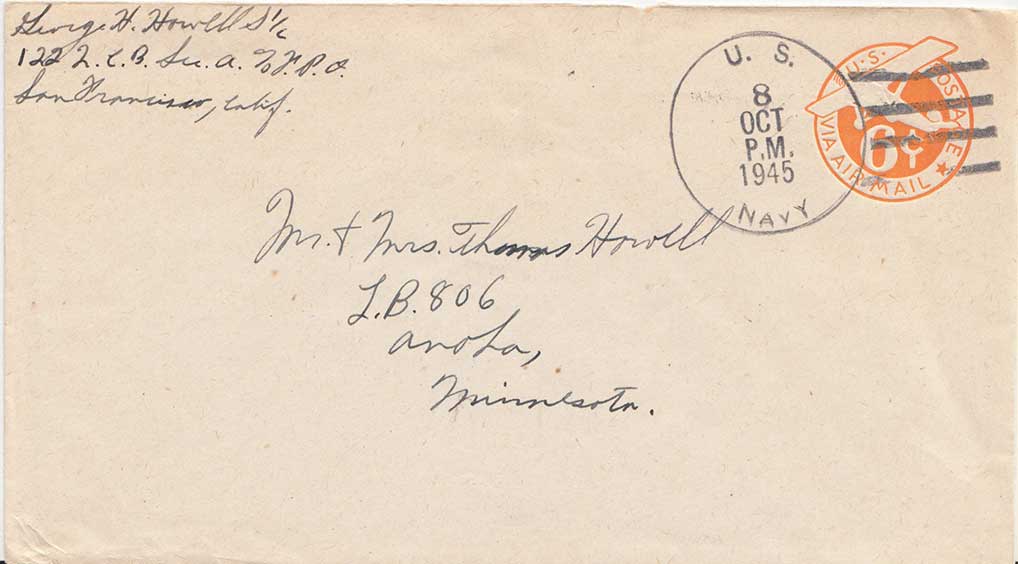 George H. Howell S 1/c
122 N.C.B. Sec. A. % F.P.O.
San Francisco, Calif.
U. S.
8
OCT
P.M.
1945
NAVY
U.S. POSTAGE
6¢
VIA AIR MAIL
Mr. & Mrs. Thomas Howell
L.B. 806
Anoka,
Minnesota.